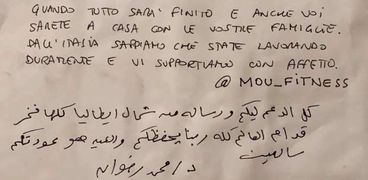 QUANDO TUTTO SARA' FINITO E ANCHE VOI
SARETE A CASA CON LE VOSTRE FAMIGLIE.
DALL'ITALIA SAPPIAMO CHE STATE LAVORANDO
DURAMENTE E VI SUPPORTIAMO CON AFFETO.
@MOU_FITNESS
كل الدعم ليكم ورساله من شمال ايطاليا كلها فخر
قدام العالم كله ربنا يحفظكم والعيد هو عودتكم
سالمين
د/محمد رضوان